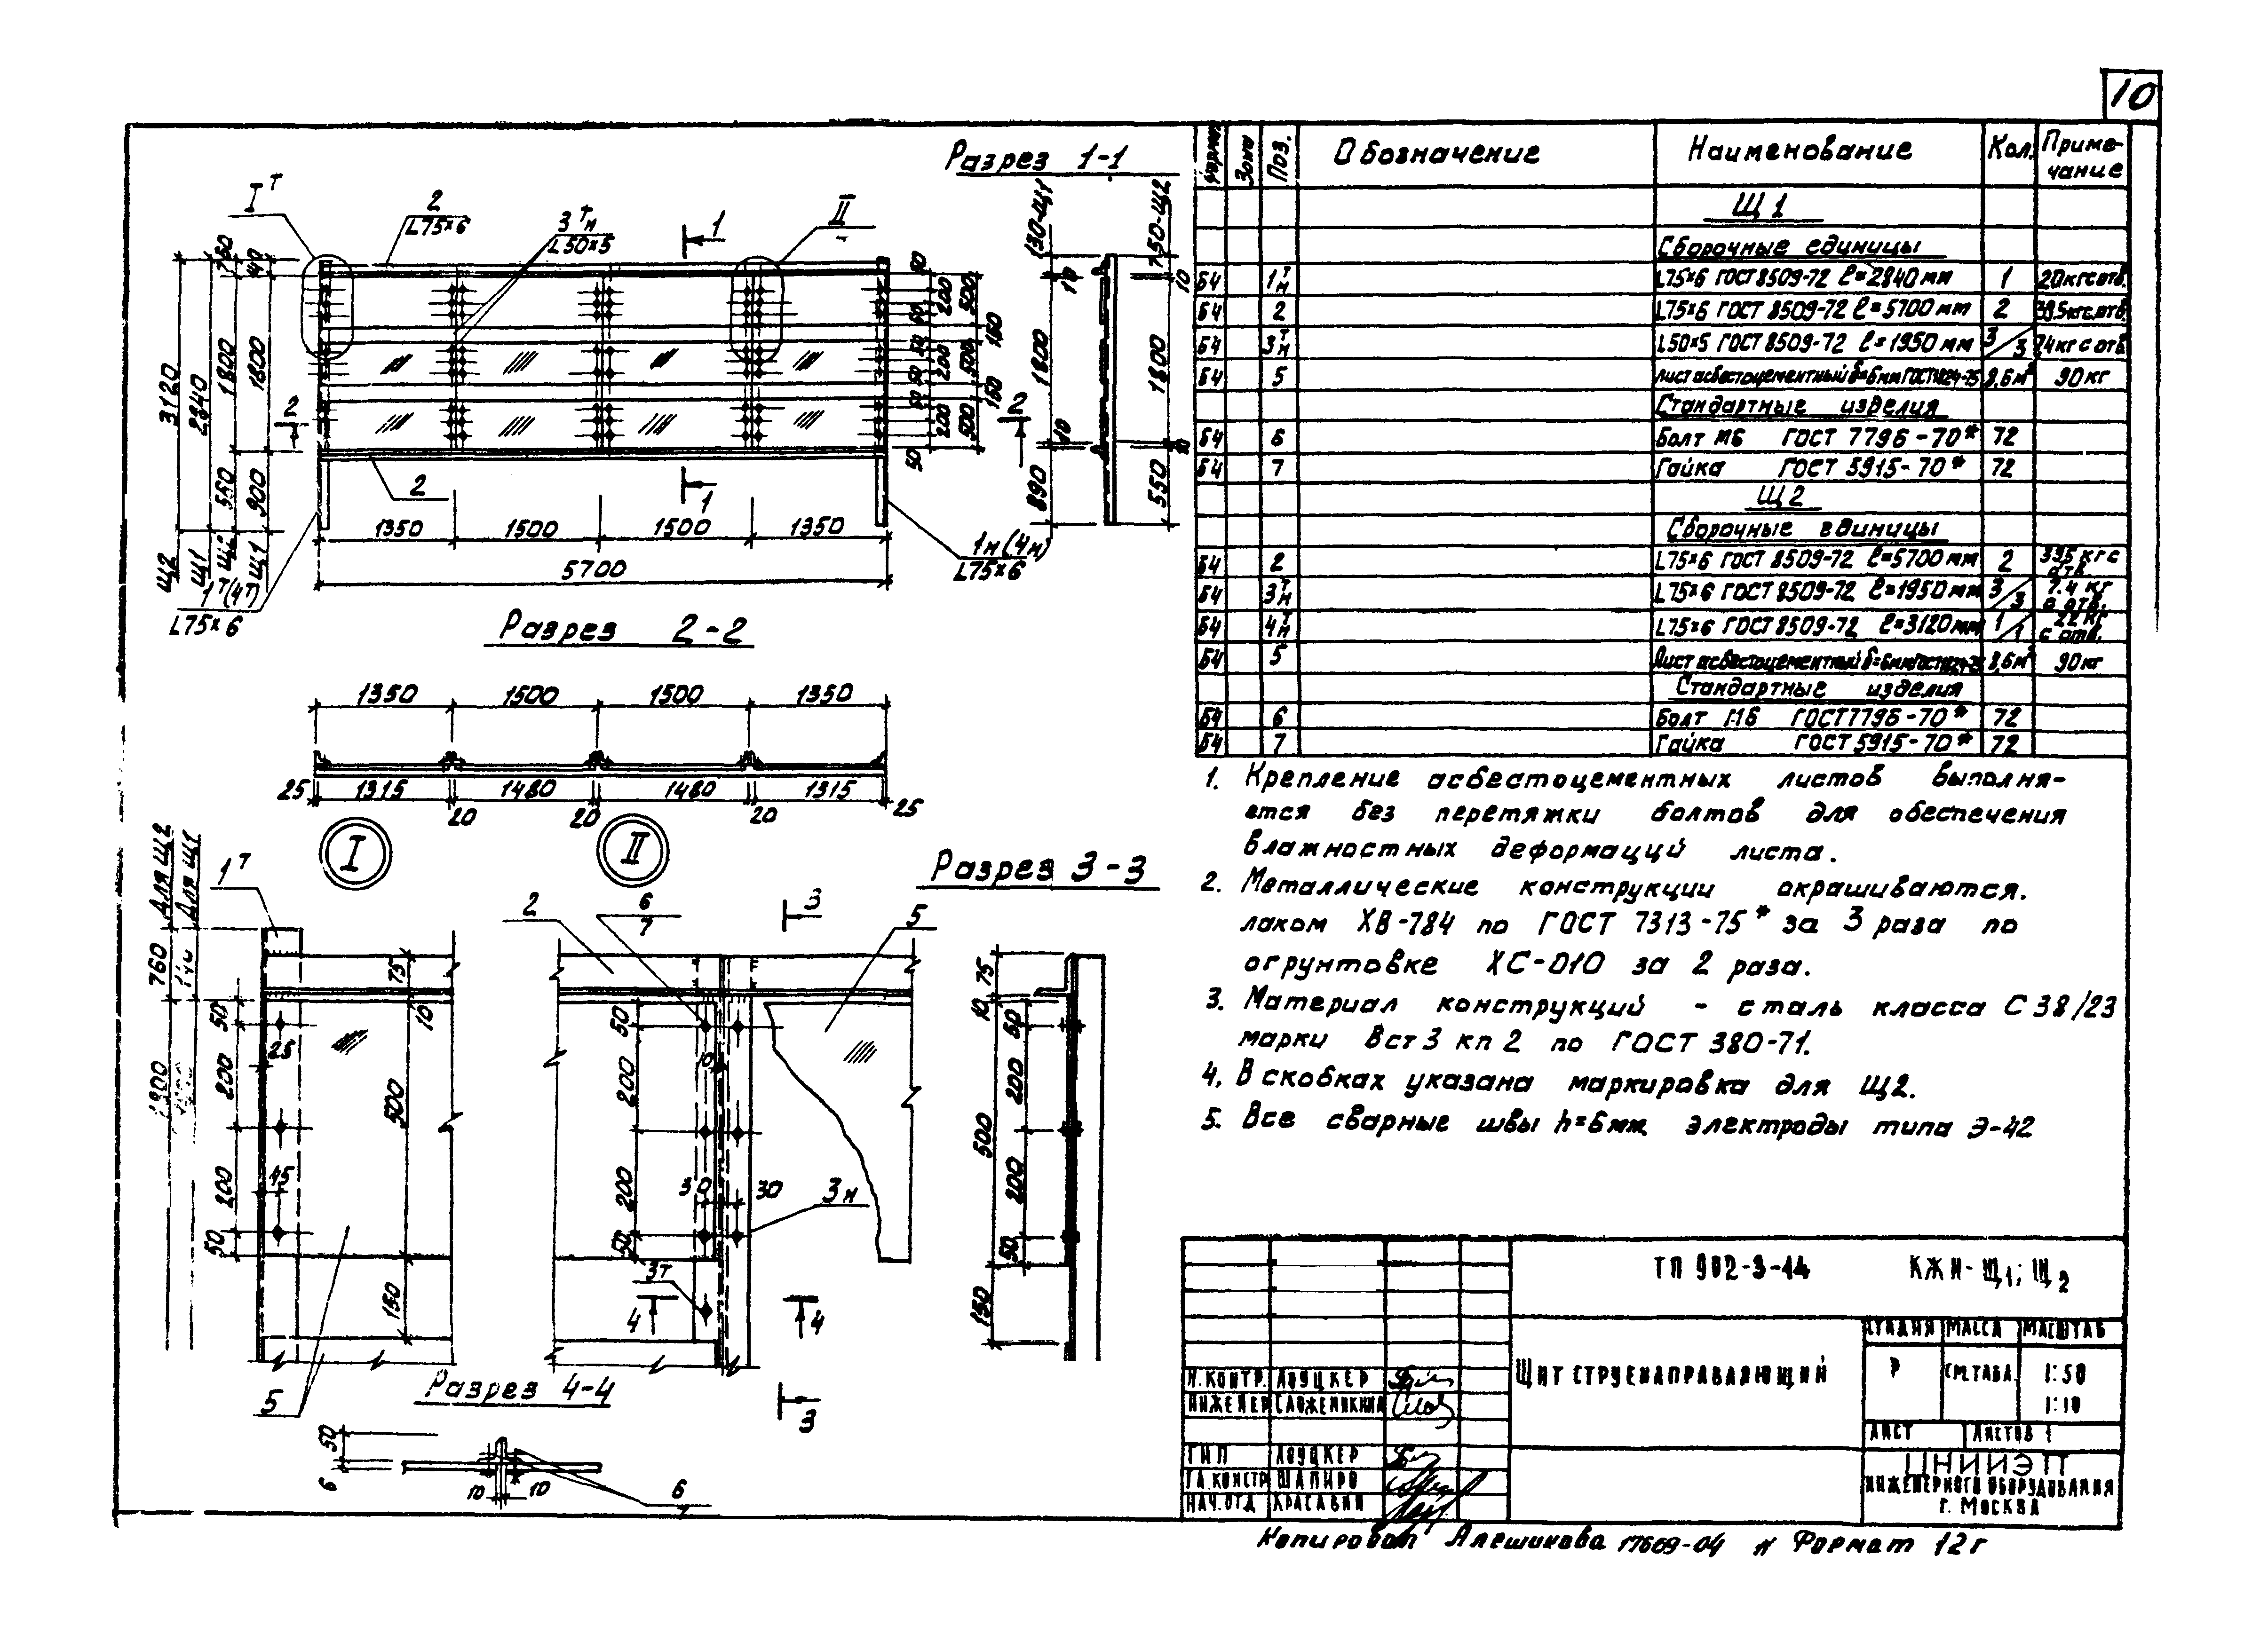 10
Разрез 1-1
I т
2
L75×6
3 т н
L50×5
1
II
130-Щ1
750-Щ2
760
40
3120
2840
1800
1800
550
900
Щ2
Щ1
Щ2
Щ1
2
2
200
500
150
50
200
500
50
150
200
500
50
2
1
1350
1500
1500
1350
5700
1т(4т)
L75×6
1н(4н)
L75×6
10
1800
10
890
10
1800
10
550
Разрез 2-2
1350
1500
1500
1350
25
1315
1480
1480
1315
25
20
20
20
I
II
Разрез 3-3
Для Щ2
Для Щ1
1т
760
50
200
200
50
25
45
75
10
500
150
5
2
6
7
3
5
50
200
200
50
10
30
30
3н
3т
4
4
3
75
10
500
150
50
200
200
50
Разрез 4-4
50
6
10
10
6
7
Формат Зона Поз. Обозначение Наименование Кол. Примечание
Щ1
Сборочные единицы
Б4 1 т н L75×6 ГОСТ 8509-72 ℓ=2840 мм 1 20кг с отв.
Б4 2 L75×6 ГОСТ 8509-72 ℓ=5700 мм 2 39.5кг с отв.
Б4 3 т н L50×5 ГОСТ 8509-72 ℓ=1950 мм 3/3 7.4 кг с отв.
Б4 5 Лист асбестоцементный δ=6мм 8,6 м² 90 кг
Стандартные изделия
Б4 6 Болт М6 ГОСТ 7796-70* 72
Б4 7 Гайка ГОСТ 5915-70* 72
Щ2
Сборочные единицы
Б4 2 L75×6 ГОСТ 8509-72 ℓ=5700 мм 2 39.5 кг с отв.
Б4 3 т н L75×6 ГОСТ 8509-72 ℓ=1950 мм 3/3 7.4 кг с отв.
Б4 4 т н L75×6 ГОСТ 8509-72 ℓ=3120 мм 1/1 22 кг с отв.
Б4 5 Лист асбестоцементный δ=6мм 8,6 м² 90 кг
Стандартные изделия
Б4 6 Болт М6 ГОСТ 7796-70* 72
Б4 7 Гайка ГОСТ 5915-70* 72
1. Крепление асбестоцементных листов выполня-
ется без перетяжки болтов для обеспечения
влажностных деформаций листа.
2. Металлические конструкции окрашиваются.
лаком ХВ-784 по ГОСТ 7313-75* за 3 раза по
огрунтовке ХС-010 за 2 раза.
3. Материал конструкций - сталь класса С 38/23
марки Вст 3 кп 2 по ГОСТ 380-71.
4. В скобках указана маркировка для Щ2.
5. Все сварные швы h=6мм электроды типа Э-42
ТП 902-3-44 КЖИ-Щ1; Щ2
Щит струенаправляющий
Стадия Масса Масштаб
Р См. табл. 1:50
1:10
Лист Листов 1
ЦНИИЭП
инженерного оборудования
г. Москва
Н.контр. Лоуцкер
Инженер
ГИП Лоуцкер
Гл. констр Шапиро
Нач. отд Красавин
Копировал Алешикова 17669-04 11 Формат 12г